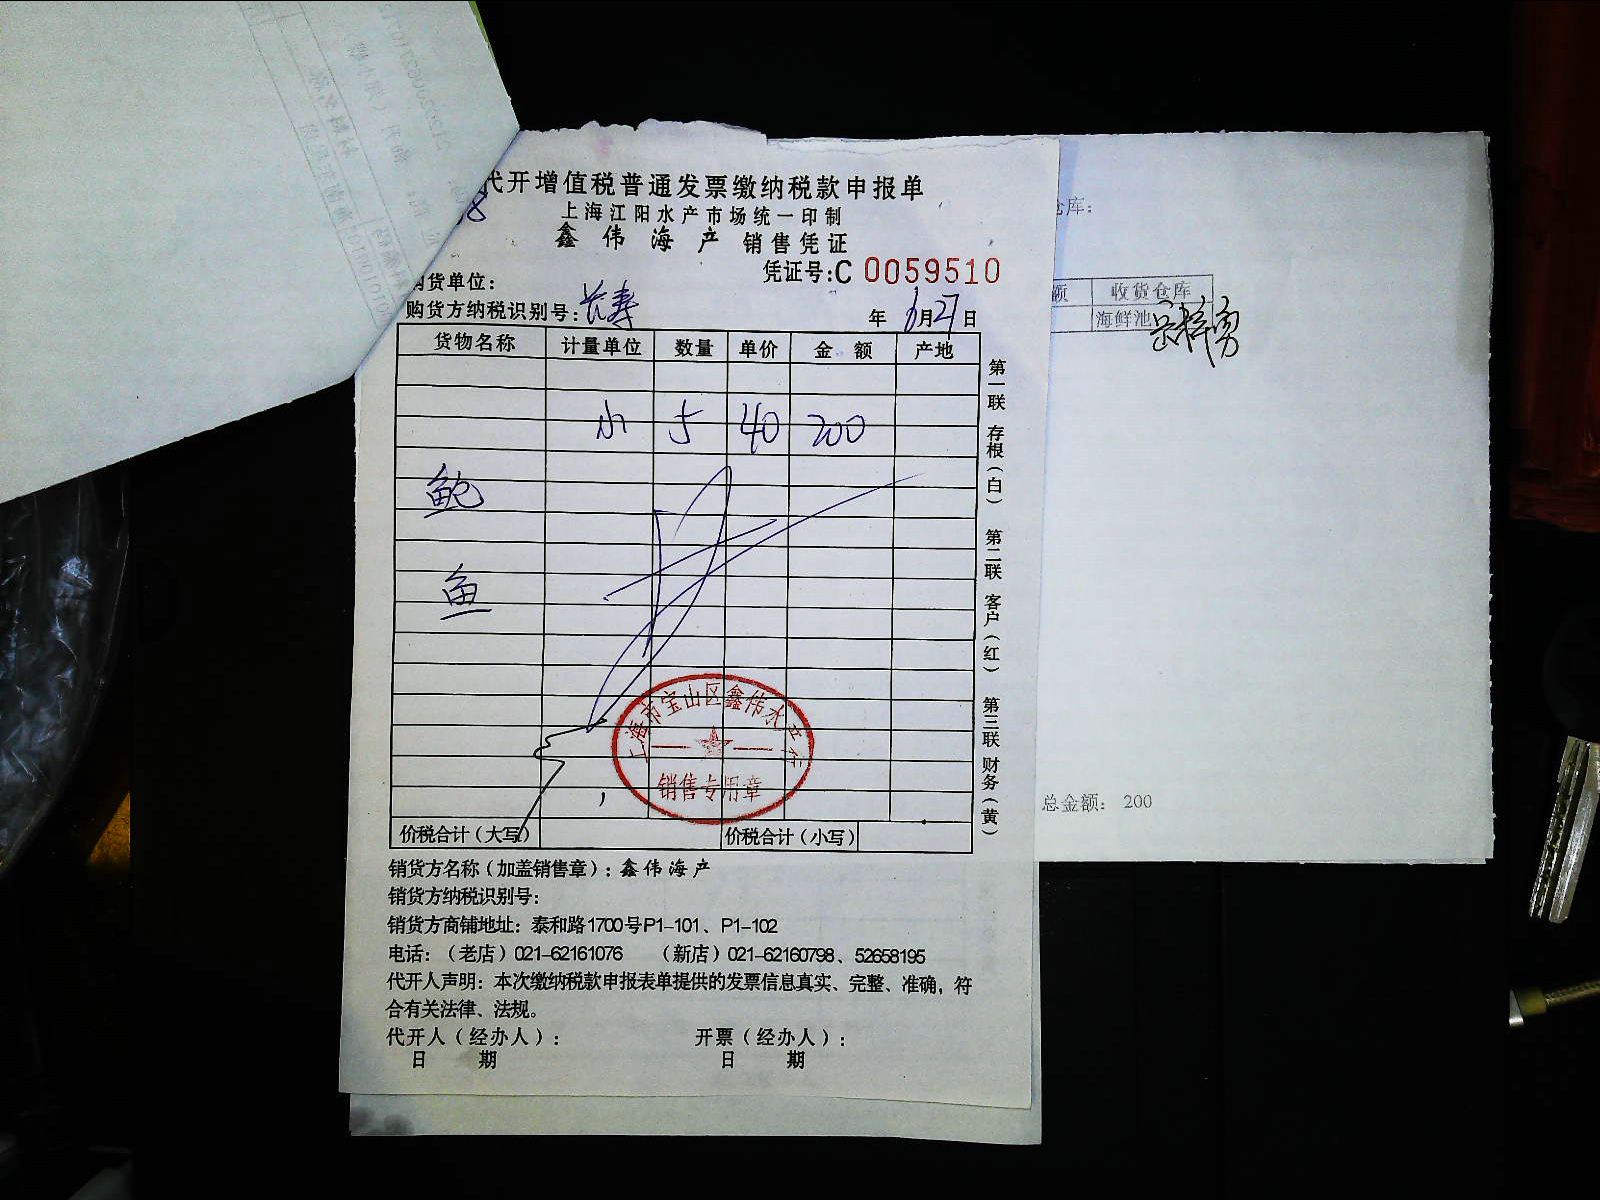 代开增值税普通发票缴纳税款申报单
上海江阳水产市场统一印制
鑫伟海产 销售凭证
凭证号:C 0059510
购货单位:
购货方纳税识别号: 长寿
年 6月27日
货物名称 计量单位 数量 单价 金额 产地
小 5 40 200
鲍
鱼
上海市宝山区鑫伟水产行
销售专用章
价税合计(大写) 价税合计(小写)
第一联 存根(白) 第二联 客户(红) 第三联 财务(黄)
销货方名称(加盖销售章): 鑫伟海产
销货方纳税识别号:
销货方商铺地址: 泰和路1700号P1-101、P1-102
电话:(老店)021-62161076 (新店)021-62160798、52658195
代开人声明: 本次缴纳税款申报表单提供的发票信息真实、完整、准确,符
合有关法律、法规。
代开人(经办人): 开票(经办人):
日 期 日 期
仓库:
额 收货仓库
海鲜池
总金额: 200